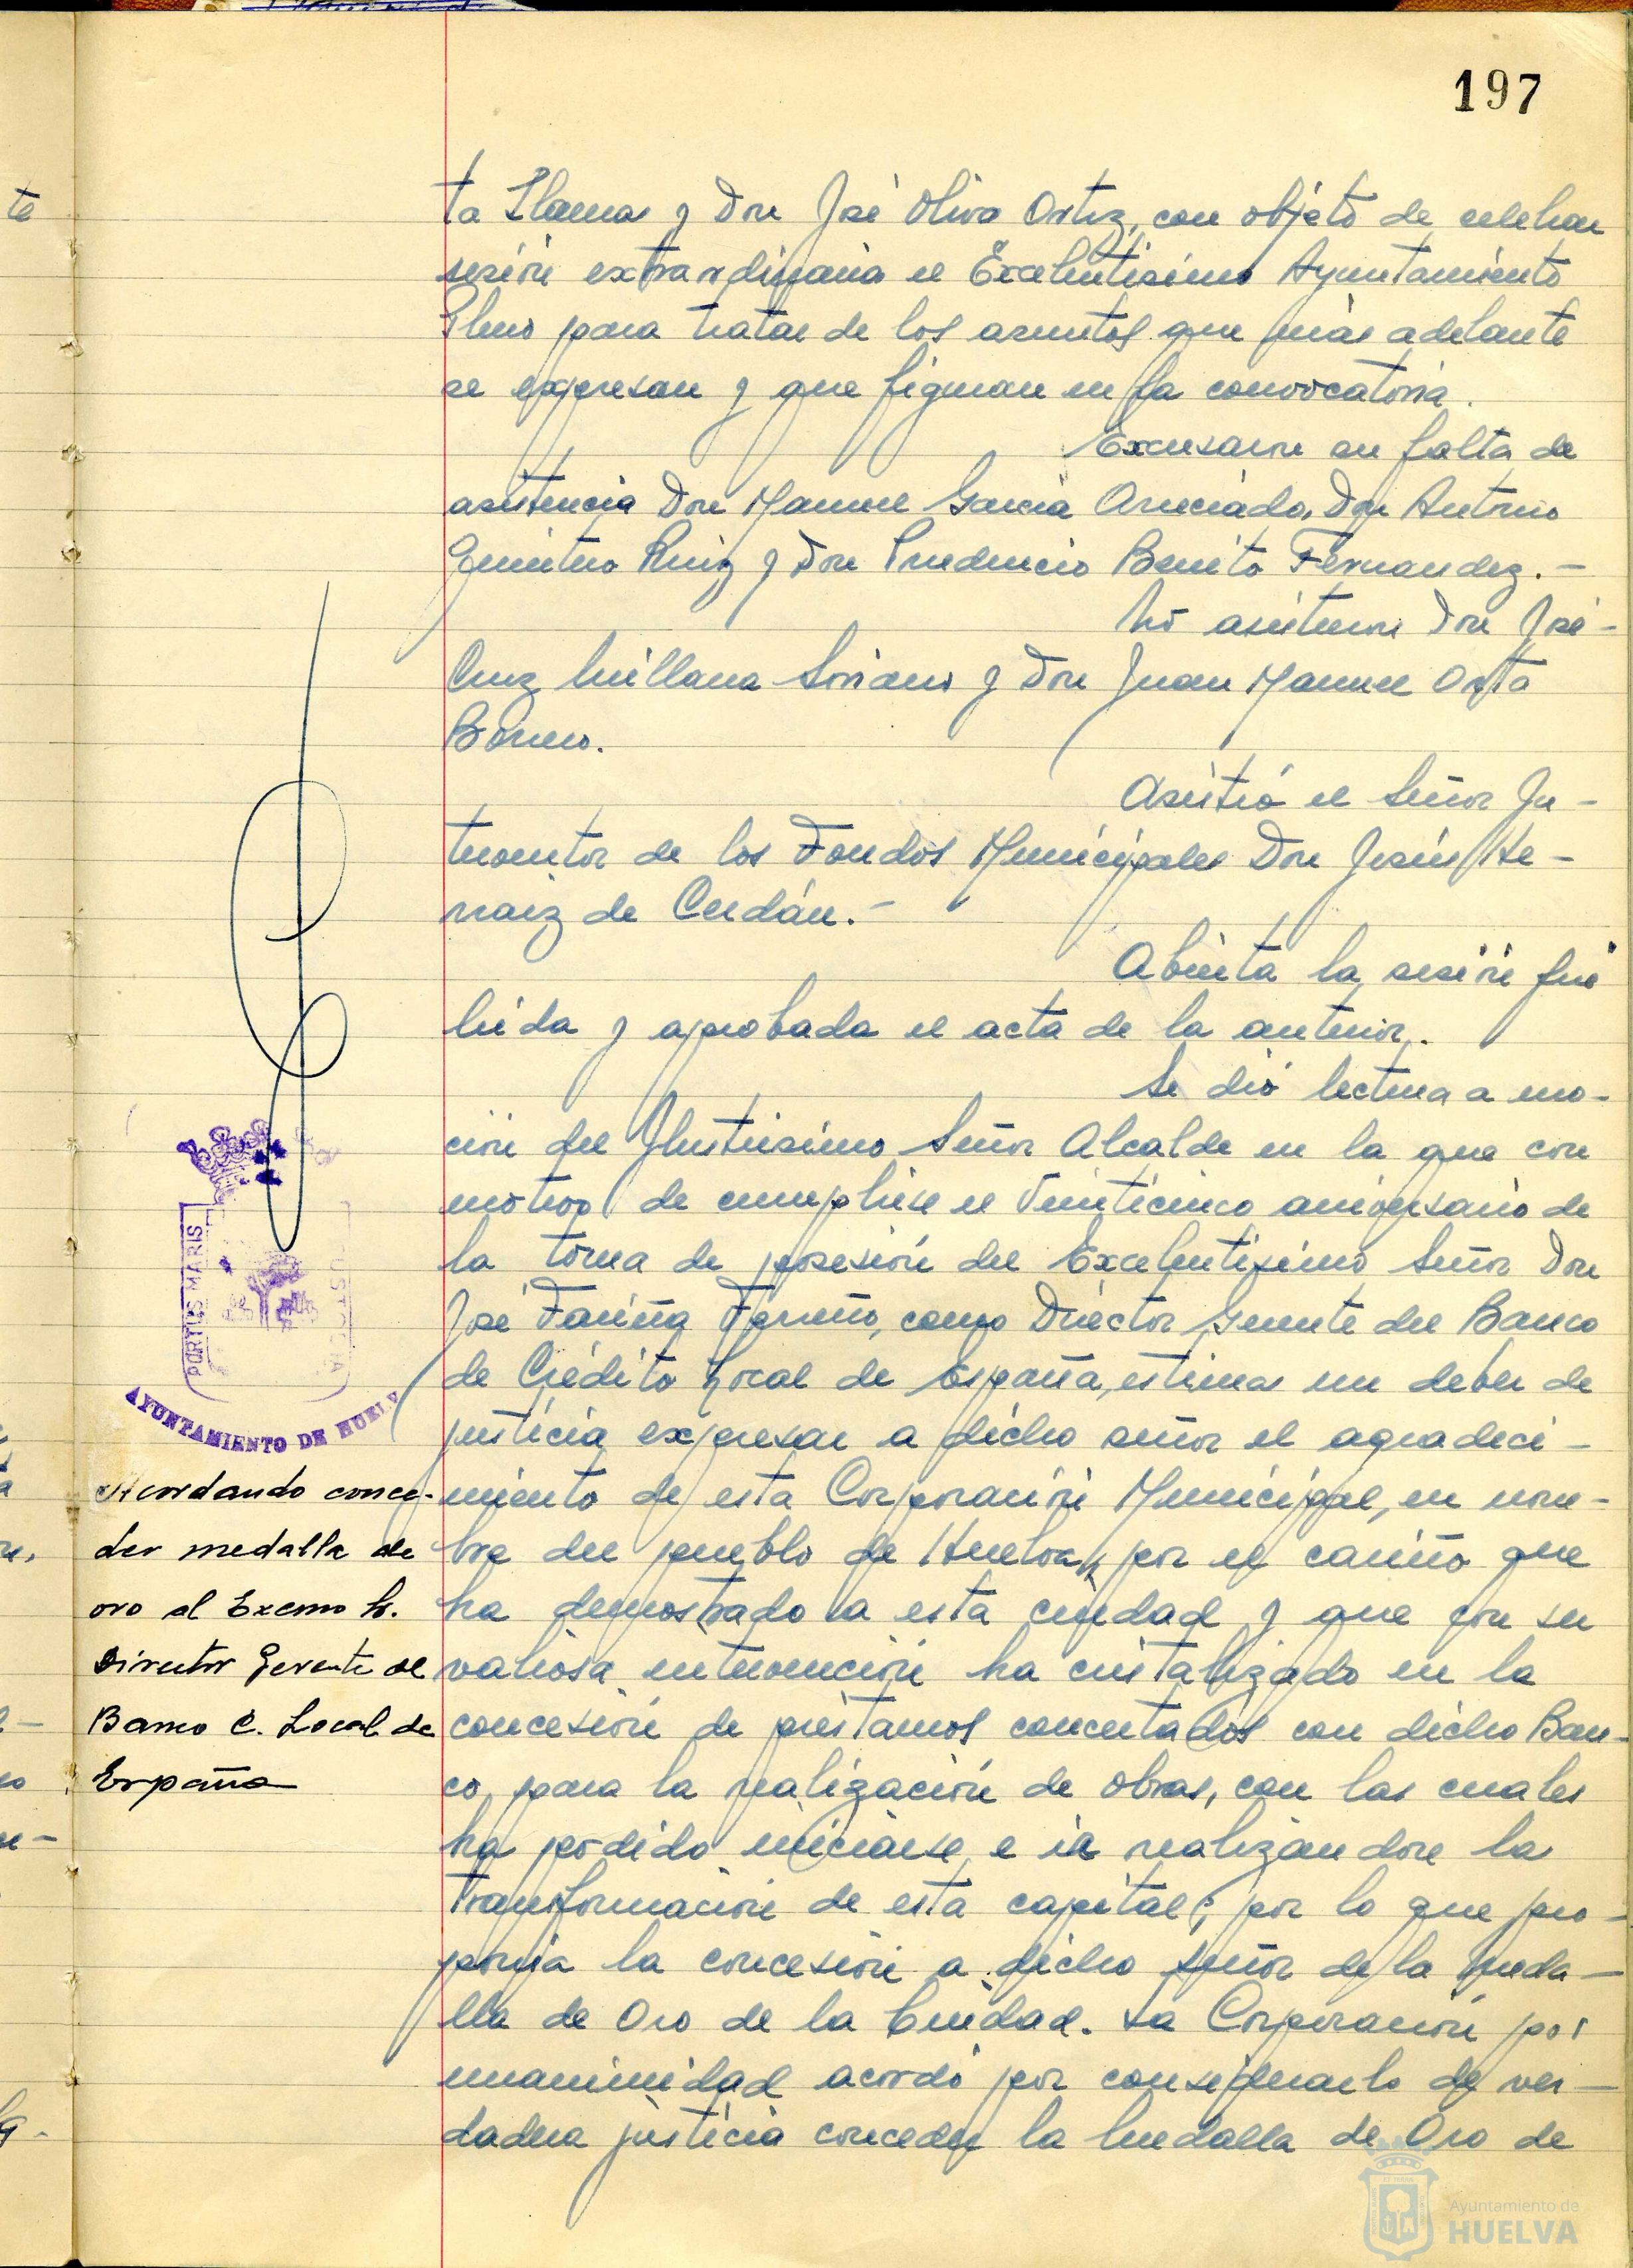 197
ta Llamas y Don José Oliva Ortiz, con objeto de celebrar
sesión extraordinaria el Excelentísimo Ayuntamiento
Pleno para tratar de los asuntos que más adelante
se expresan y que figuran en la convocatoria.
Excusaron su falta de
asistencia Don Manuel García Don Antonio
Quintero Ruiz y Don Prudencio Benito Fernandez.-
No asistieron Don José
Cruz Millana Soriano y Don Juan Manuel Orta
Borrero.
Asistió el Señor In-
terventor de los Fondos Municipales Don Jesús He-
rraiz de Cerdán.-
Abierta la sesión fué
leída y aprobada el acta de la anterior.
Se dió lectura a mo-
ción del Ilustrísimo Señor Alcalde en la que con
motivo de cumplirse el Veinticinco aniversario de
la toma de posesión del Excelentísimo Señor Don
José Fariña Ferreño, como Director Gerente del Banco
de Crédito Local de España, estimas un deber de
justicia expresar a dicho señor el agradeci-
miento de esta Corporación Municipal, en nom-
bre del pueblo de Huelva, por el cariño que
ha demostrado a esta ciudad y que con su
valiosa intervención ha cristalizado en la
concesión de préstamos concertados con dicho Ban-
co, para la realización de obras, con las cuales
ha podido iniciarse e ir realizándose la
transformación de esta capital; por lo que pro-
ponía la concesión a dicho señor de la Meda-
lla de Oro de la Ciudad. La Corporación por
unanimidad acordó por considerarlo de ver-
dadera justicia conceder la Medalla de Oro de
PORTUS MARIS
CUSTODIA
AYUNTAMIENTO DE HUELVA
Acordando conce-
der medalla de
oro al Excmo Sr.
Director Gerente del
Banco C. Local de
España
Ayuntamiento de
HUELVA